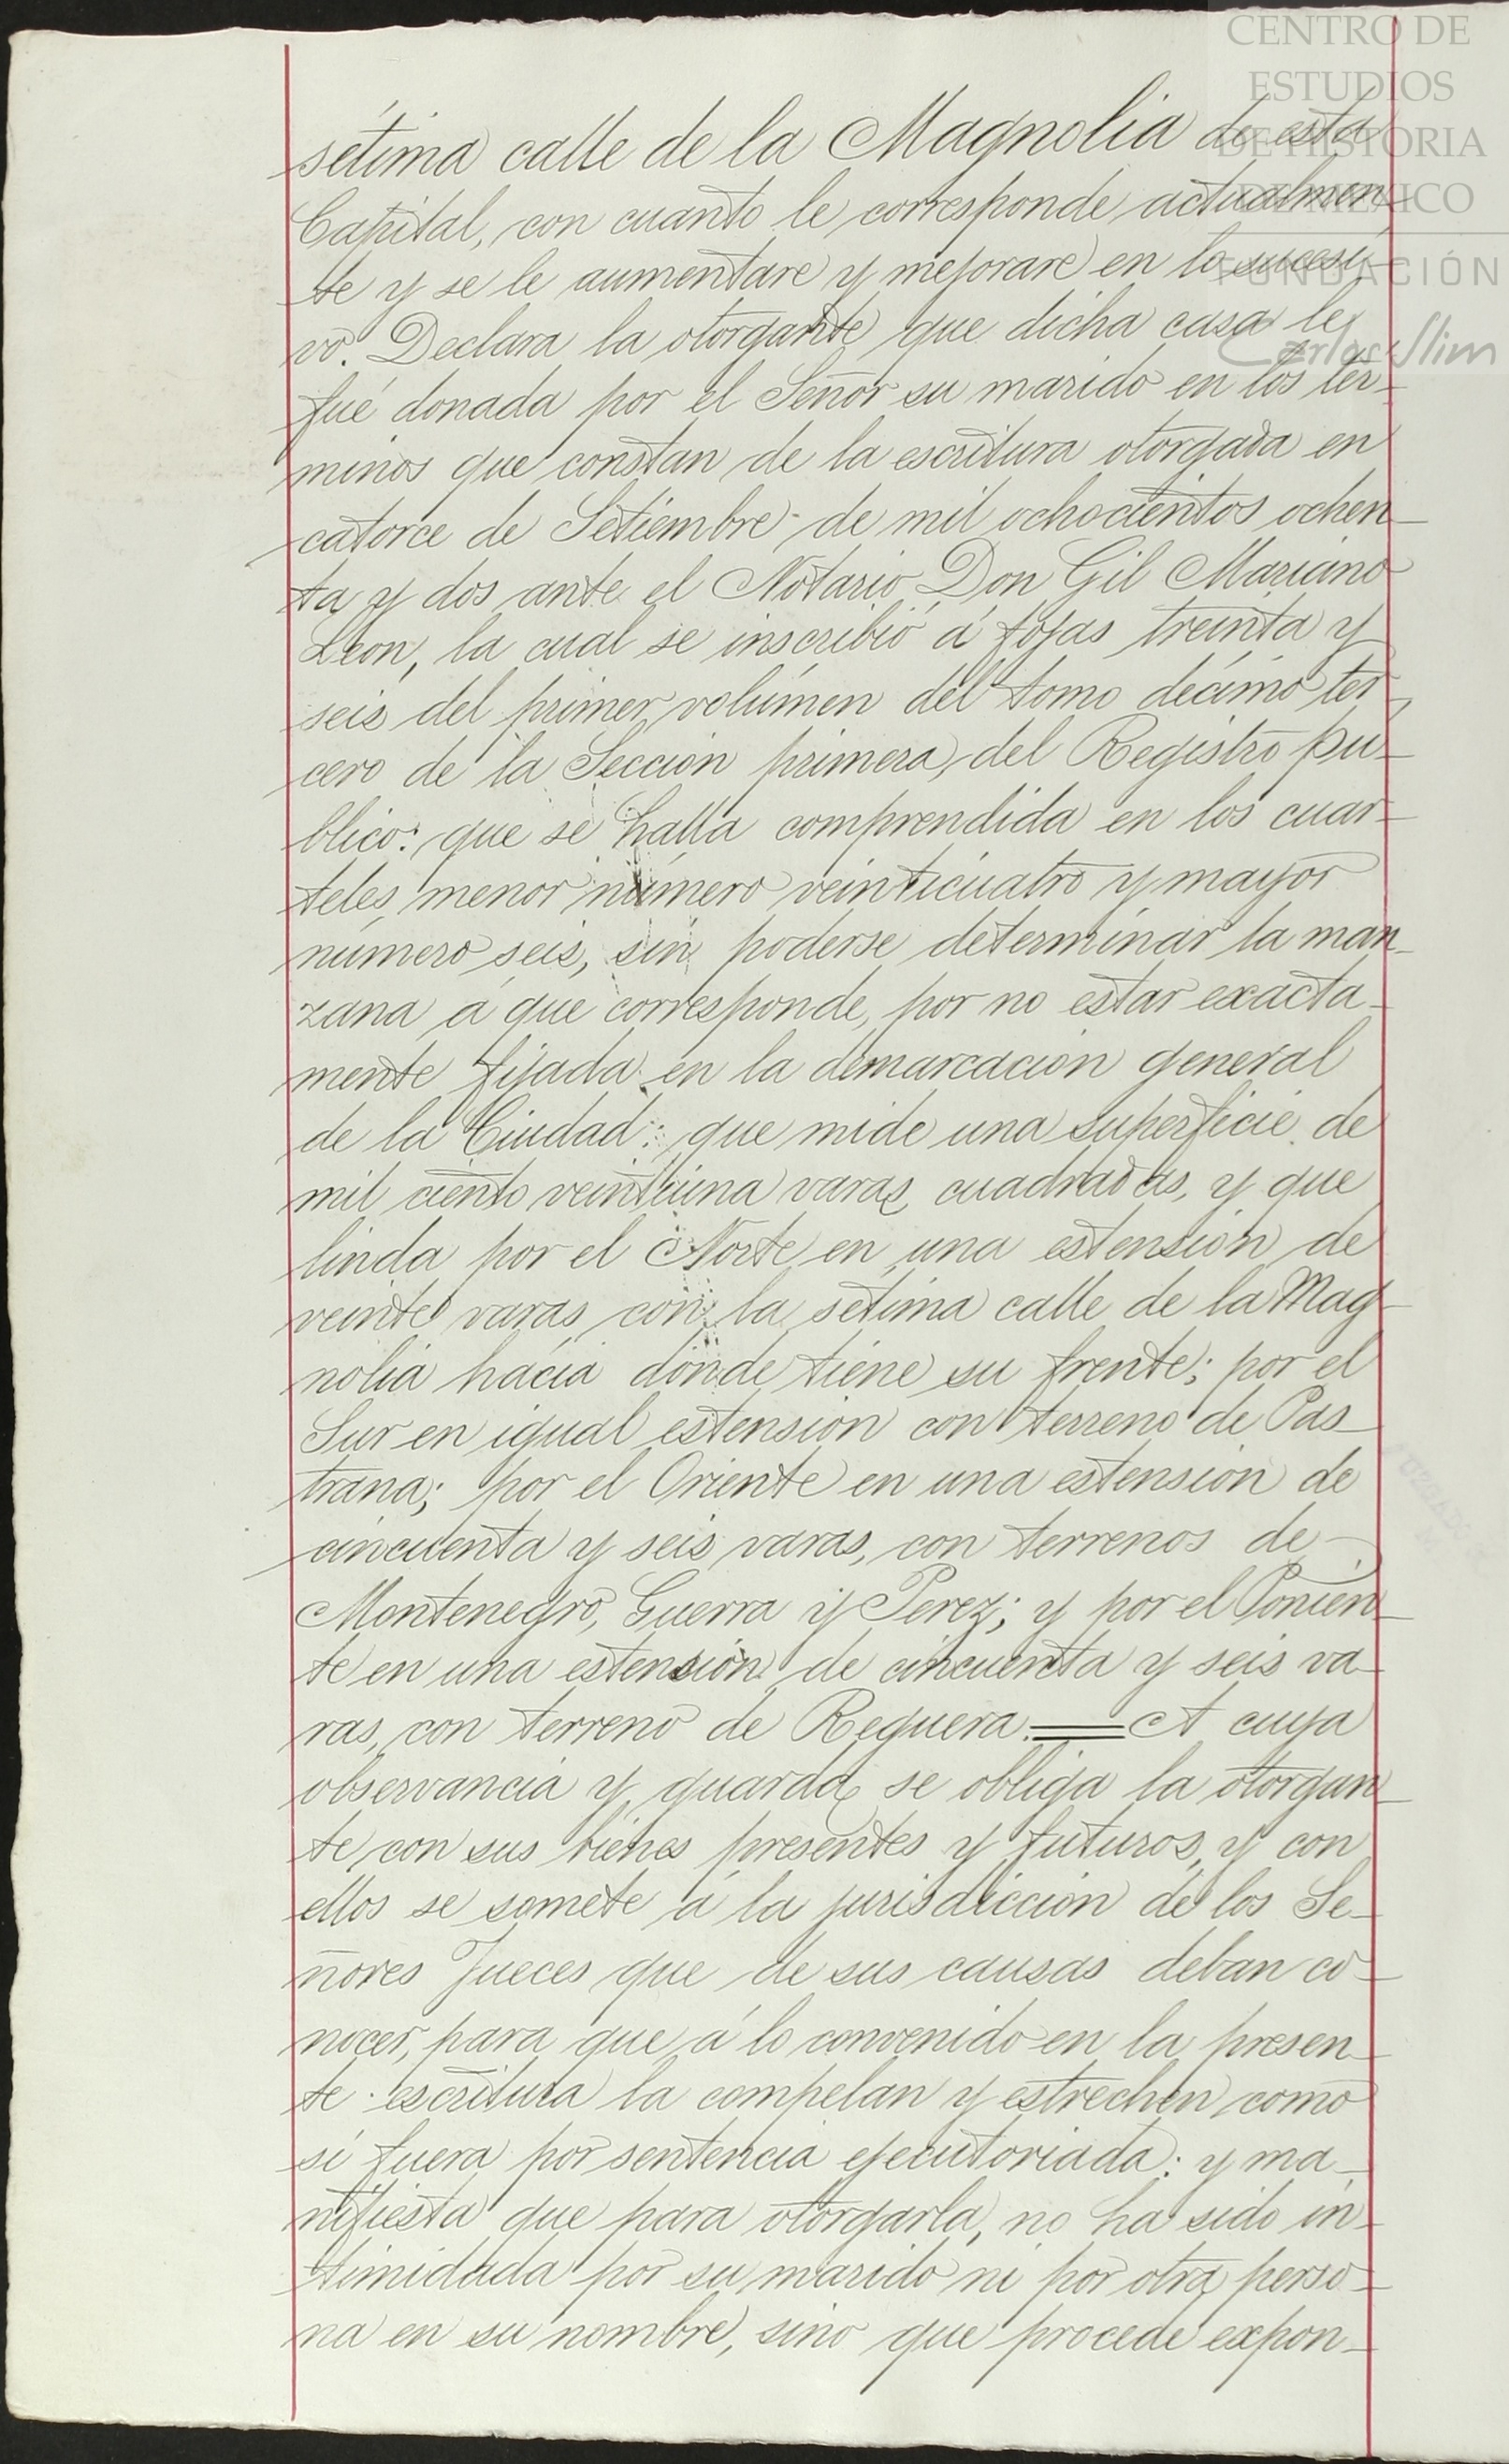 CENTRO DE
ESTUDIOS
DE HISTORIA
DE MÉXICO
FUNDACIÓN
Carlos Slim
sétima calle de la Magnolia de esta
Capital, con cuanto le corresponde actualmen-
te y se le aumentare y mejorare en lo sucesi-
vo. Declara la otorgante que dicha casa le
fué donada por el Señor su marido en los tér-
minos que constan de la escritura otorgada en
catorce de Setiembre de mil ochocientos ochen-
ta y dos ante el Notario Don Gil Mariano
Leon, la cual se inscribió á fojas treinta y
seis del primer volúmen del tomo décimo ter-
cero de la Seccion primera del Registro pú-
blico: que se halla comprendida en los cuar-
teles, menor número veinticuatro y mayor
número seis, sin poderse determinar la man-
zana á que corresponde, por no estar exacta-
mente fijada en la demarcacion general
de la Ciudad: que mide una superficie de
mil ciento veintiuna varas cuadradas, y que
linda por el Norte en una estension de
veinte varas con la sétima calle de la Mag-
nolia hácia donde tiene su frente; por el
Sur en igual estension con terreno de Pas-
trana; por el Oriente en una estension de
cincuenta y seis varas, con terrenos de
Montenegro, Guerra y Perez; y por el Ponien-
te en una estension de cincuenta y seis va-
ras, con terreno de Reguera.=A cuya
observancia y guarda se obliga la otorgan-
te con sus bienes presentes y futuros, y con
ellos se somete á la jurisdiccion de los Se-
ñores Jueces que de sus causas deban co-
nocer, para que á lo convenido en la presen-
te escritura la compelan y estrechen como
si fuera por sentencia ejecutoriada: y ma-
nifiesta que para otorgarla, no ha sido in-
timidada por su marido ni por otra perso-
na en su nombre, sino que procede expon-